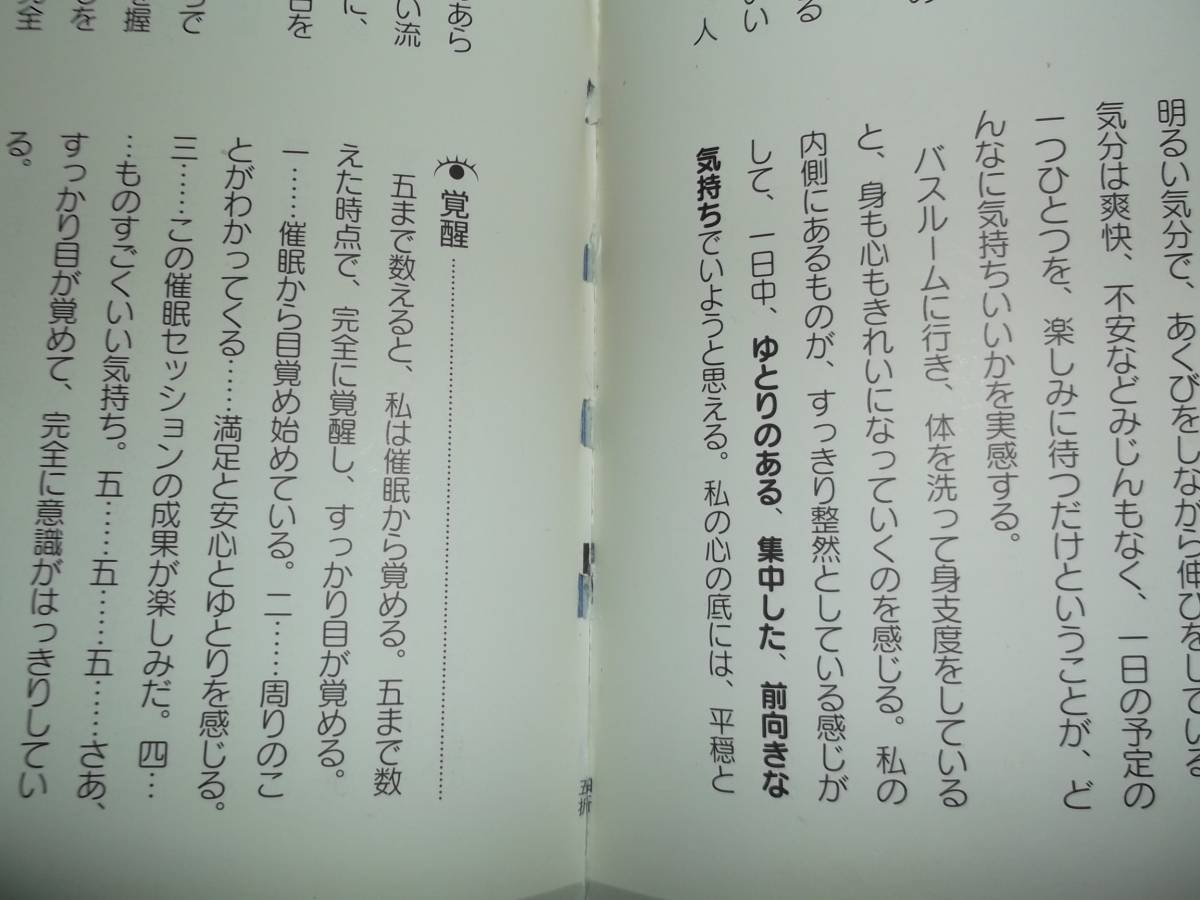 の
る
いい
人
明るい気分で、あくびをしながら伸びをしている
気分は爽快、不安などみじんもなく、一日の予定の
一つひとつを、楽しみに待つだけということが、ど
んなに気持ちいいかを実感する。
バスルームに行き、体を洗って身支度をしている
と、身も心もきれいになっていくのを感じる。私の
内側にあるものが、すっきり整然としている感じが
して、一日中、ゆとりのある、集中した、前向きな
気持ちでいようと思える。私の心の底には、平穏と
五折
あら
い流
に、
日を
覚醒
五まで数えると、私は催眠から覚める。五まで数
えた時点で、完全に覚醒し、すっかり目が覚める。
一……催眠から目覚め始めている。二……周りのこ
とがわかってくる……満足と安心とゆとりを感じる。
三……この催眠セッションの成果が楽しみだ。四…
…ものすごくいい気持ち。五……五……五……さあ、
すっかり目が覚めて、完全に意識がはっきりしてい
る。
って
握
を
全